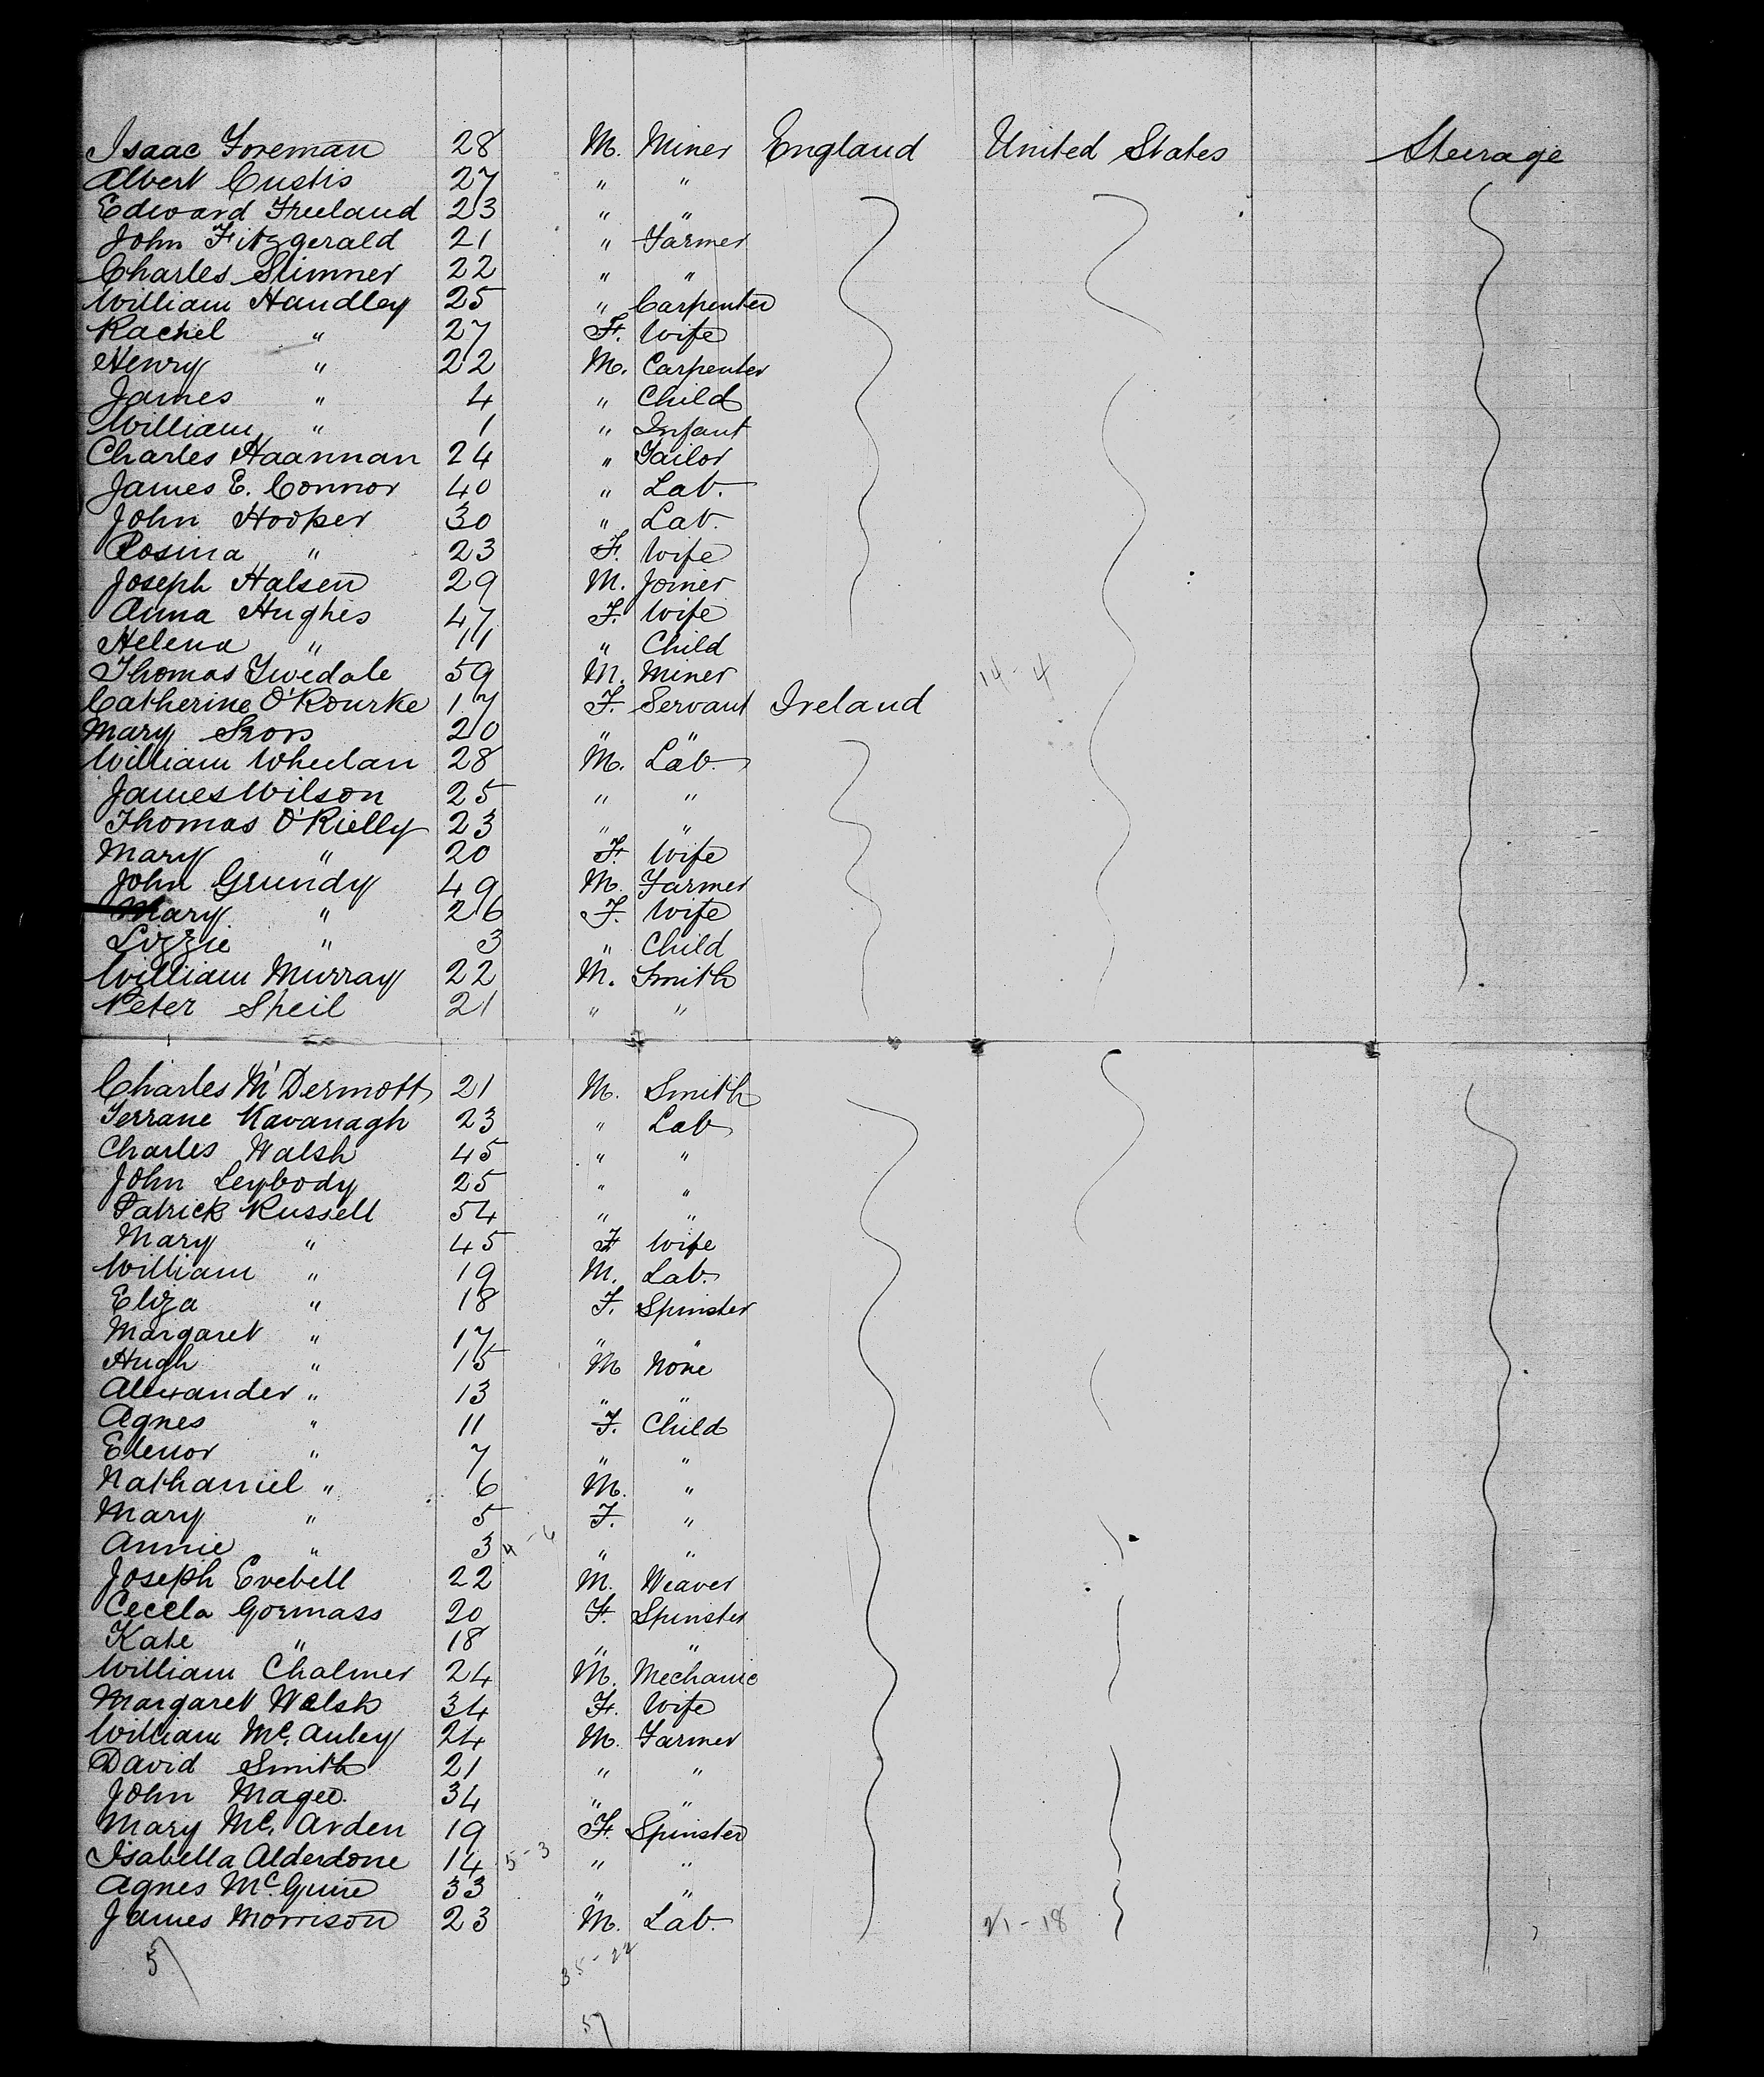 Isaac Foreman 28 M. Miner England United States Steerage
Albert Custis 27 " "
Edward Freeland 23 " "
John Fitzgerald 21 " Farmer
Charles Slimmer 22 " "
William Handley 25 " Carpenter
Rachel " 27 F. Wife
Henry " 22 M. Carpenter
James " 4 " Child
William " 1 " Infant
Charles Haannan 24 " Tailor
James E. Connor 40 " Lab.
John Hooper 30 " Lab.
Rosina " 23 F. Wife
Joseph Halsen 29 M. Joiner
Anna Hughes 47 F. Wife
Helena " 11 " Child
Thomas Twedale 59 M. Miner 14-4
Catherine O'Rourke 17 F. Servant Ireland
Mary 20 " "
William Whelan 28 M. Lab.
James Wilson 25 " "
Thomas O'Rielly 23 " "
Mary " 20 F. Wife
John Grundy 49 M. Farmer
Mary " 26 F. Wife
Lizzie " 3 " Child
William Murray 22 M. Smith
Peter Sheil 21 " "
Charles M'Dermott 21 M. Smith
Terrane Kavanagh 23 " Lab
Charles Walsh 45 " "
John Leybody 25 " "
Patrick Russell 54 " "
Mary " 45 F Wife
William " 19 M. Lab.
Eliza " 18 F. Spinster
Margaret " 17 " "
Hugh " 15 M None
Alexander " 13 " "
Agnes " 11 F. Child
Elenor " 7 " "
Nathaniel " 6 M. "
Mary " 5 F. "
Annie " 3 4-6 " "
Joseph Evebell 22 M. Weaver
Cecela Gormass 20 F. Spinster
Kate " 18 " "
William Chalmer 24 M. Mechanic
Margaret Walsh 34 F. Wife
William Mc. Auley 24 M. Farmer
David Smith 21 " "
John Magee. 34 " "
Mary Mc. Arden 19 F. Spinster
Isabella Alderdone 14 5-3 " "
Agnes Mc. Guire 33 " "
James Morrison 23 M. Lab. 21-18
57 35-22
57